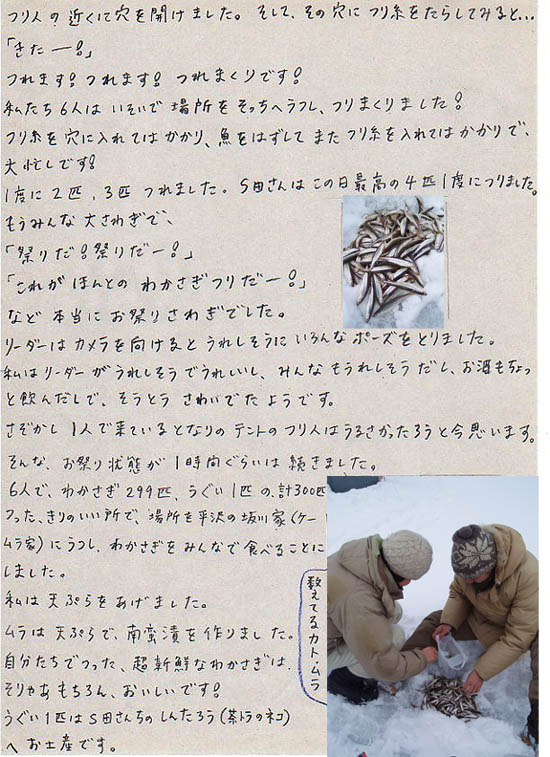 フリ人の近くに穴を開けました。そして、その穴にフリ糸をたらしてみると…
「きたー！」
つれます！つれます！つれまくりです！
私たち6人はいそいで場所をそっちへうつし、つりまくりました！
フリ糸を穴に入れてはかかり、魚をはずしてまたフリ糸を入れてはかかりで、
大忙しです！
1度に2匹、3匹つれました。S田さんはこの日最高の4匹1度につりました。
もうみんな大さわぎで、
「祭りだ！祭りだー！」
「これがほんとのわかさぎフリだー！」
など本当にお祭りさわぎでした。
リーダーはカメラを向けるとうれしそうにいろんなポーズをとりました。
私はリーダーがうれしそうでうれしいし、みんなもうれしそうだし、お酒もちょっ
と飲んだしで、そうとうさわいでたようです。
さぞかし1人で来ているとなりのテントのフリ人はうるさかったろうと今思います。
そんな、お祭り状態が1時間ぐらいは続きました。
6人で、わかさぎ299匹、うぐい1匹の、計300匹
つった、きりのいい所で、場所を平沢の坂川家（ケー
ムラ家）にうつし、わかさぎをみんなで食べることに
しました。
私は天ぷらをあげました。
ムラは天ぷらで、南蛮漬を作りました。
自分たちでつった、超新鮮なわかさぎは、
そりゃあもちろん、おいしいです！
うぐい1匹はS田さんちのしんたろう（茶トラのネコ）
へお土産です。
数えてるカト・ムラ